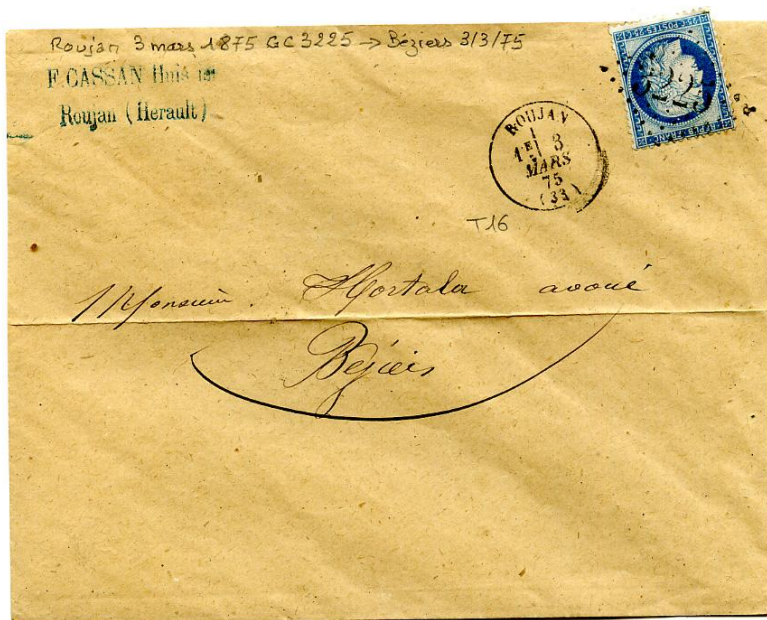 Roujan 3 mars 1875 GC 3225 → Béziers 3/3/75
F. CASSAN Huis ier
Roujan (Herault)
3225
ROUJAN
1E
3
MARS
75
(33)
T16
Monsieur Hortala avoué
Béziers